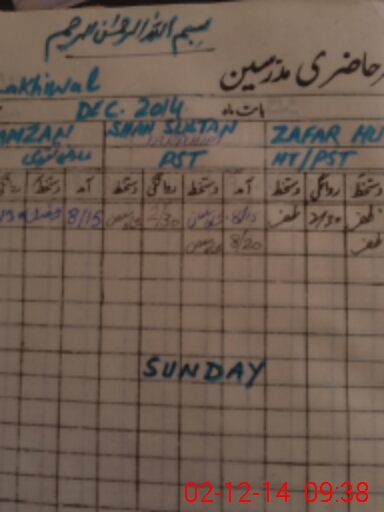 بسم اللہ الرحمٰن الرحیم
حاضری مدرسین
akhiwal
بابت ماہ DEC. 2014
AMZAN SHAH SULTAN ZAFAR HU
PST HT/PST
دستخط روانگی دستخط آمد دستخط روانگی دستخط آمد دستخط
ظفر 2/30 ظفر 8/15 2/30 8/15
ظفر 8/20
SUNDAY
02-12-14 09:38